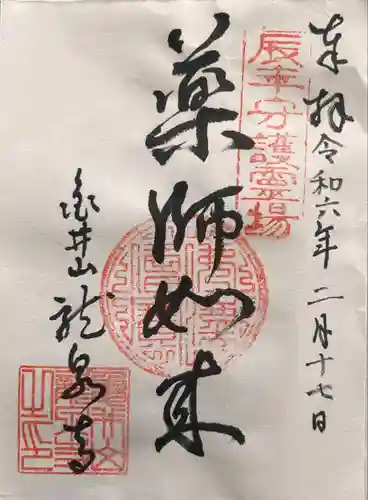 奉拝 令和六年 二月十七日
辰年守護霊場
薬師如来
龍泉寺